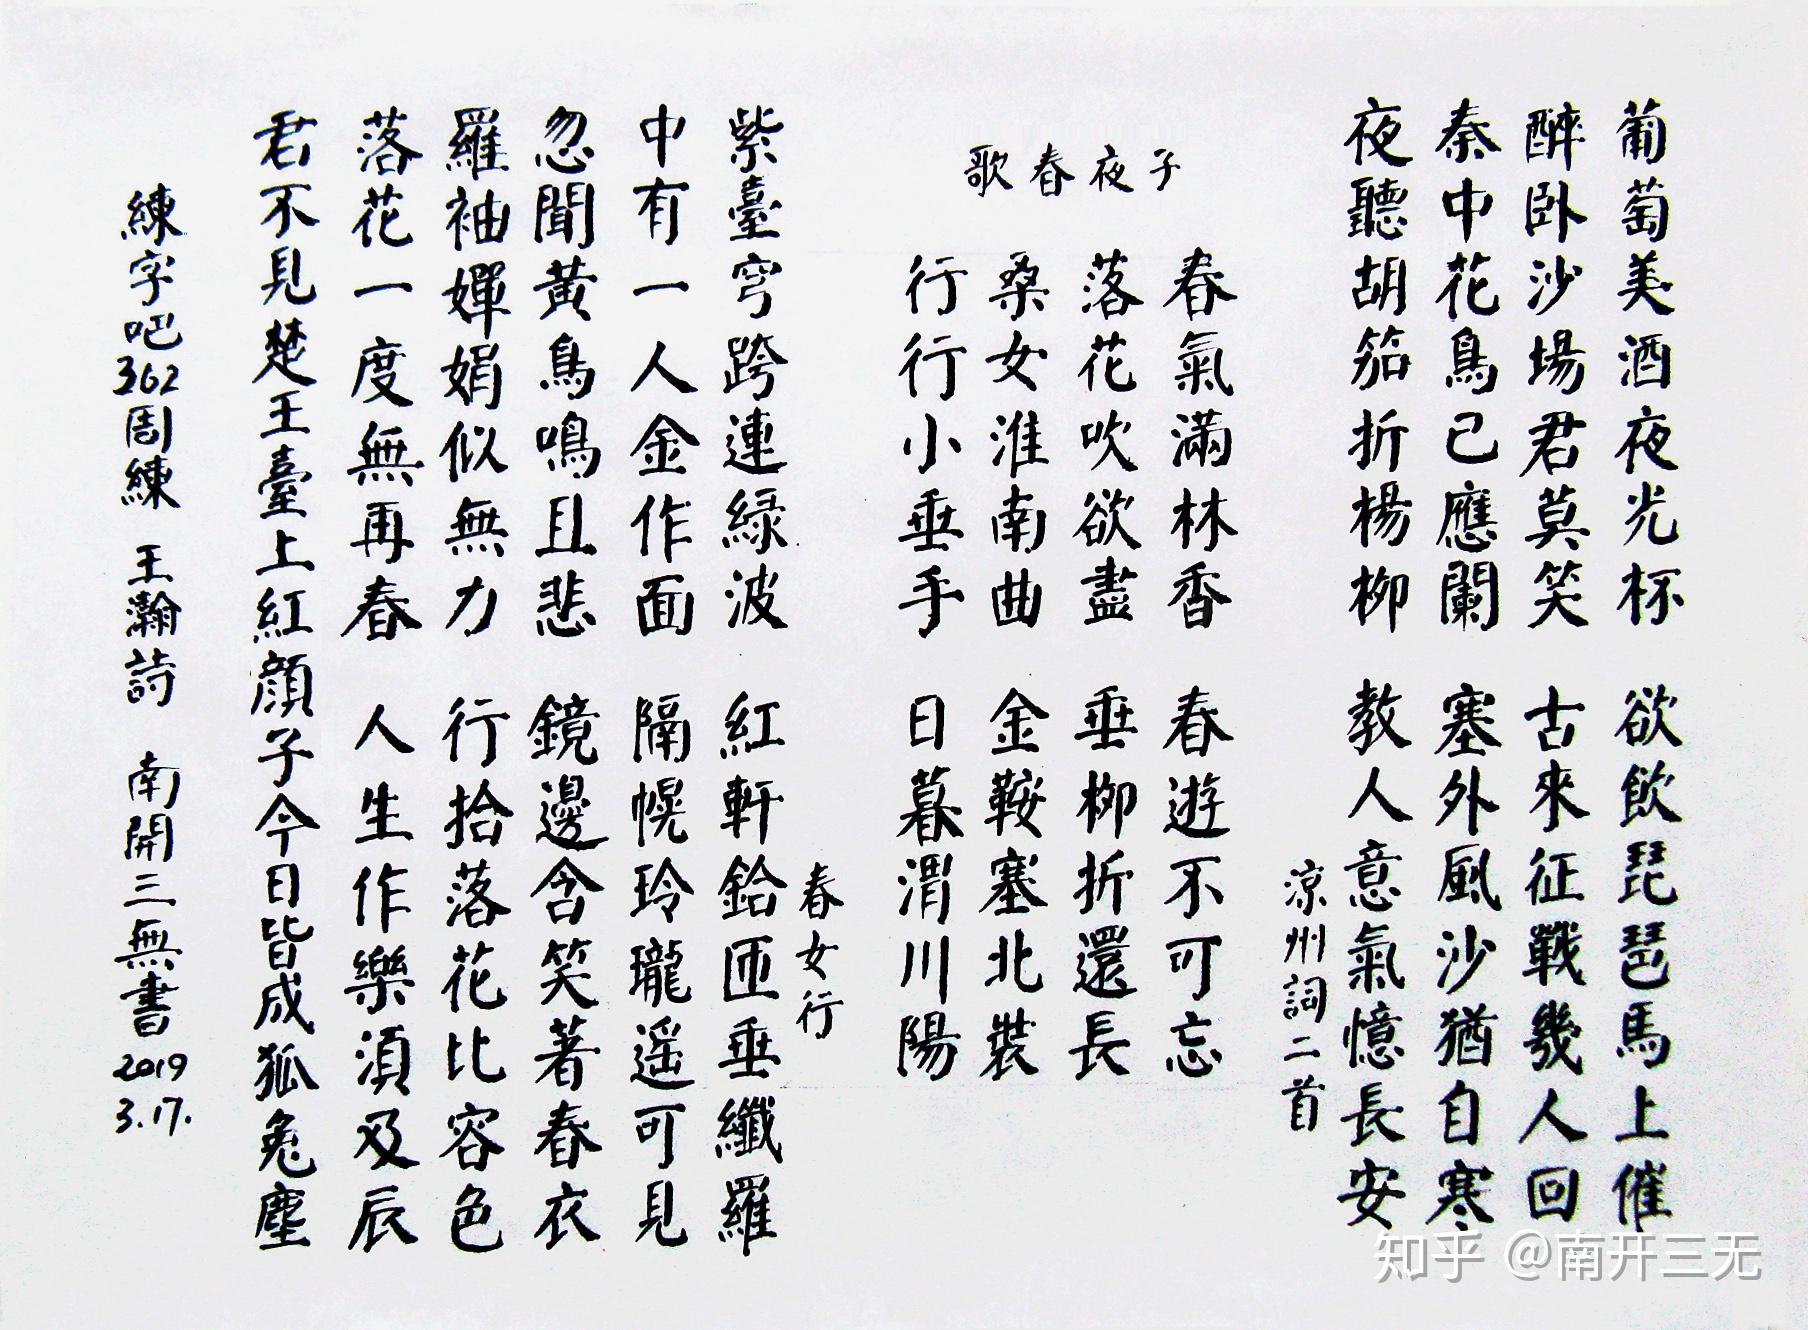 葡萄美酒夜光杯　欲飲琵琶馬上催
醉卧沙場君莫笑　古來征戰幾人回
秦中花鳥已應闌　塞外風沙猶自寒
夜聽胡笳折楊柳　教人意氣憶長安
涼州詞二首
子夜春歌
春氣滿林香　春遊不可忘
落花吹欲盡　垂柳折還長
桑女淮南曲　金鞍塞北裝
行行小垂手　日暮渭川陽
春女行
紫臺穹跨連緑波　紅軒鉿匝垂纖羅
中有一人金作面　隔幌玲瓏遥可見
忽聞黃鳥鳴且悲　鏡邊含笑著春衣
羅袖嬋娟似無力　行拾落花比容色
落花一度無再春　人生作樂須及辰
君不見楚王臺上紅顔子今日皆成狐兔塵
練字吧362周練　王瀚詩　南開三無書2019 3.17.
知乎 @南开三无